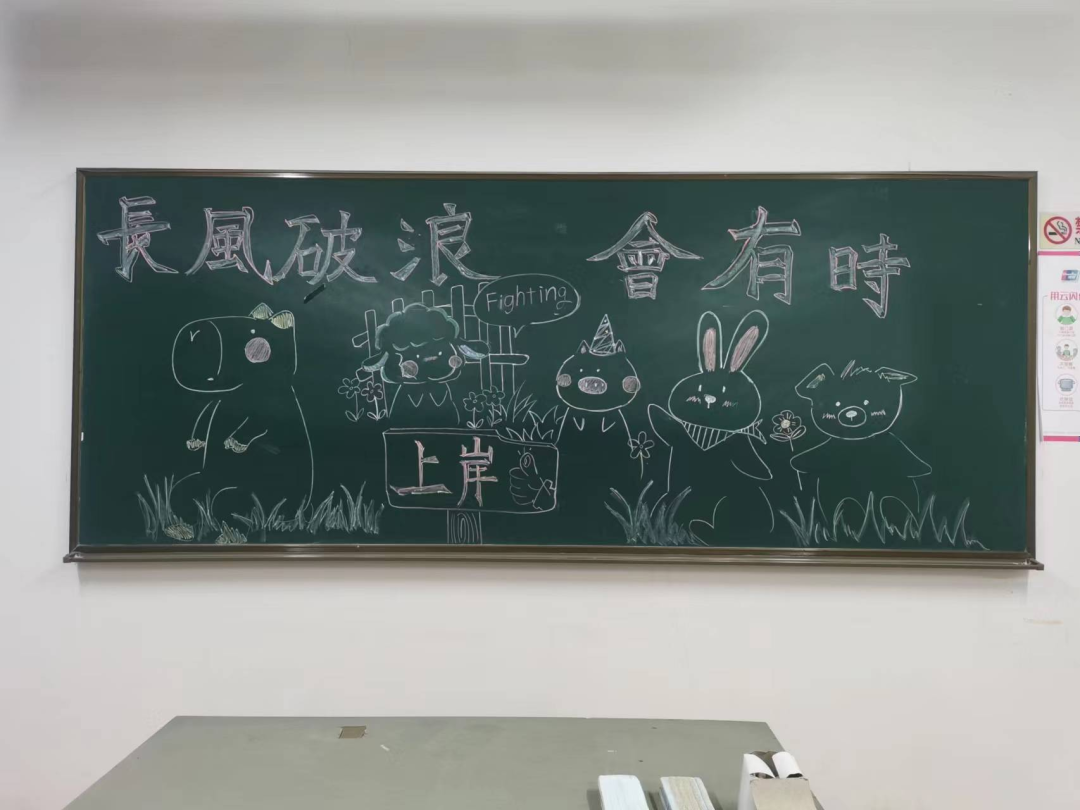 長風破浪 會有時
Fighting
上岸